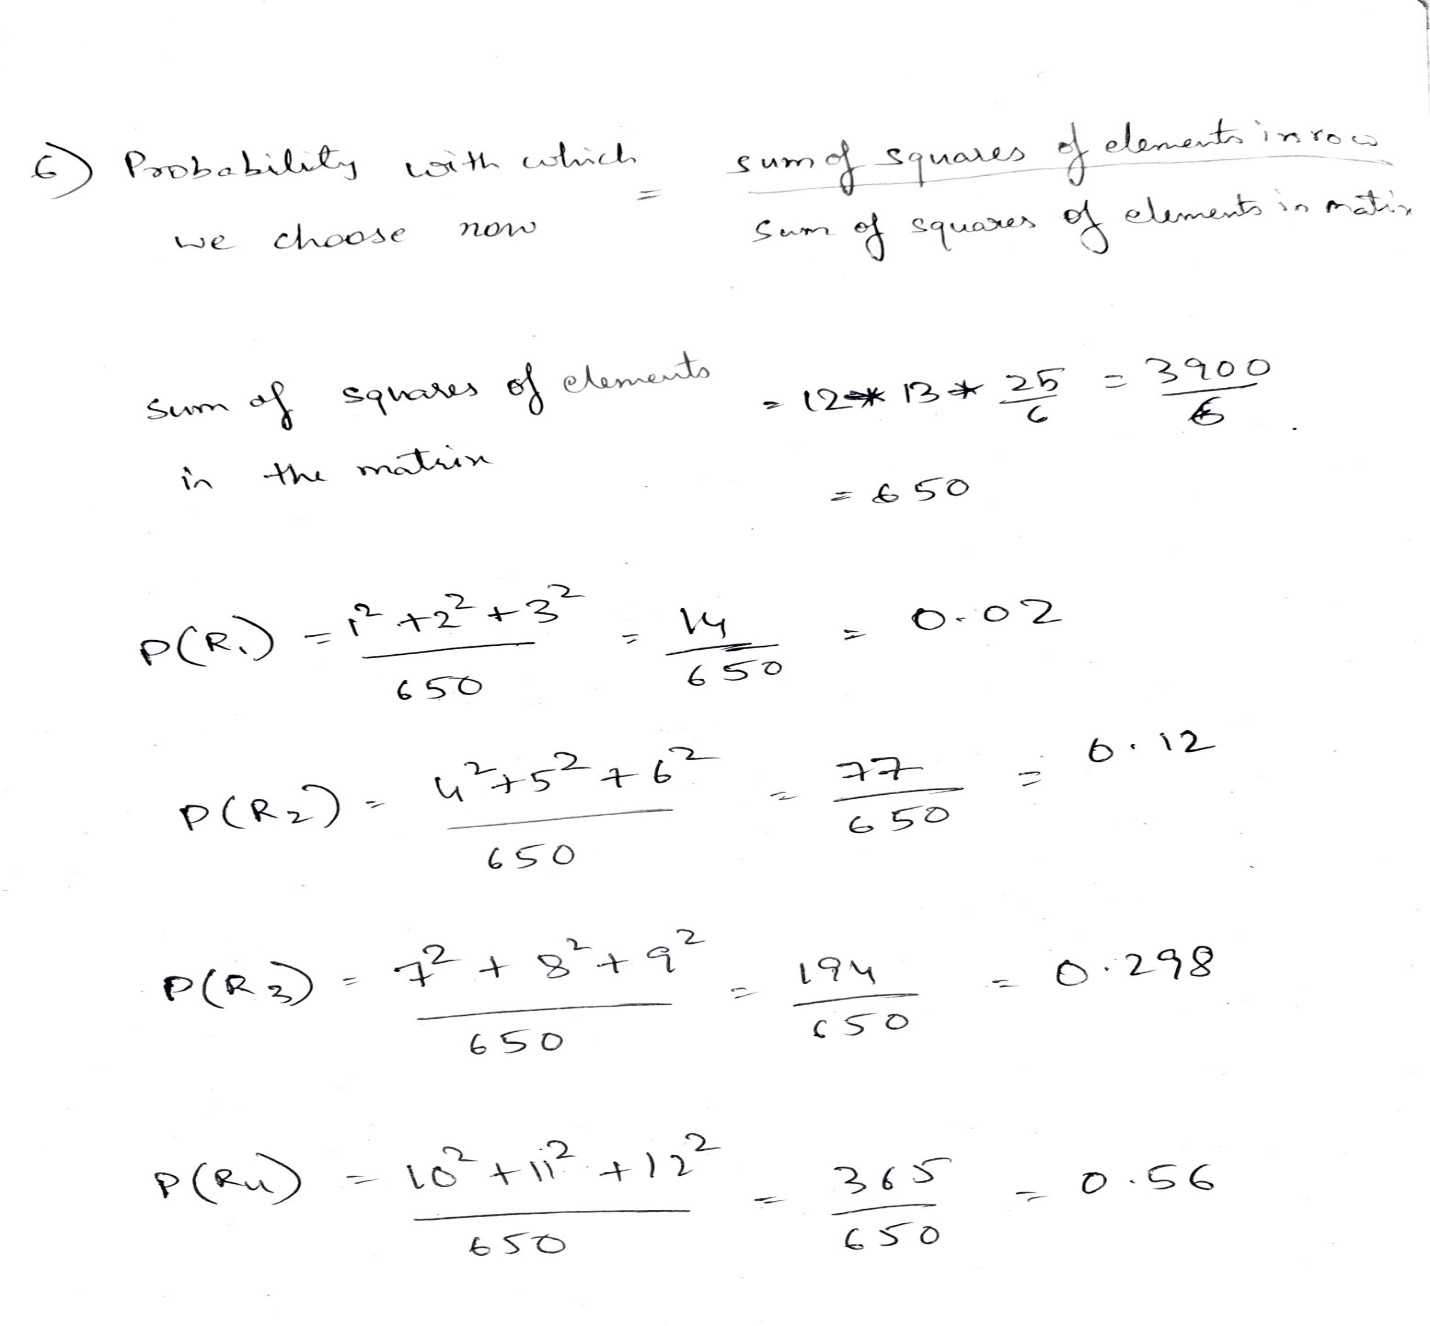 6) Probability with which we choose row = sum of squares of elements in row / sum of squares of elements in matrix
sum of squares of elements in the matrix = 12 * 13 * 25/6 = 3900/6
= 650
P(R1) = 1² + 2² + 3² / 650 = 14/650 = 0.02
P(R2) = 4² + 5² + 6² / 650 = 77/650 = 0.12
P(R3) = 7² + 8² + 9² / 650 = 194/650 = 0.298
P(R4) = 10² + 11² + 12² / 650 = 365/650 = 0.56